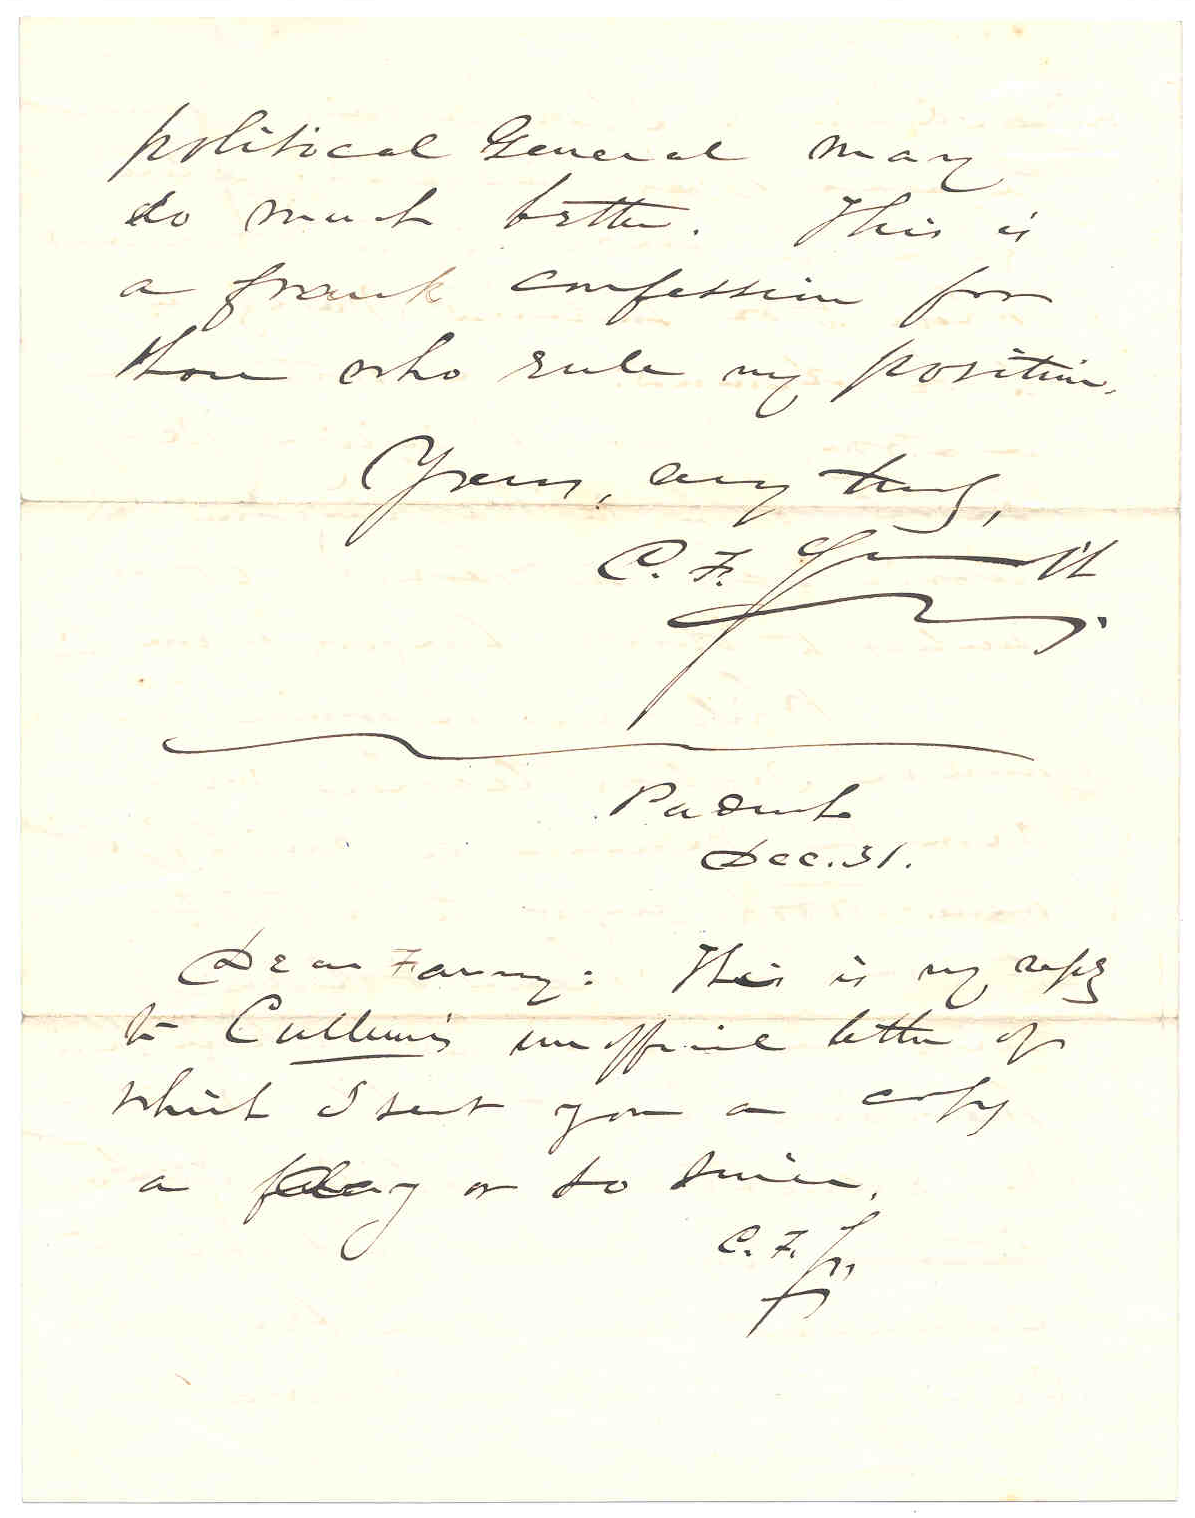 political General may
do much better. This is
a frank confession for
those who rule my position.
Yours, very truly,
C. F. Smith
Paducah
Dec. 31.
Dear Fanny: This is my reply
to Cullum's unofficial letter of
which I sent you a copy
a day or so since.
C. F. S.